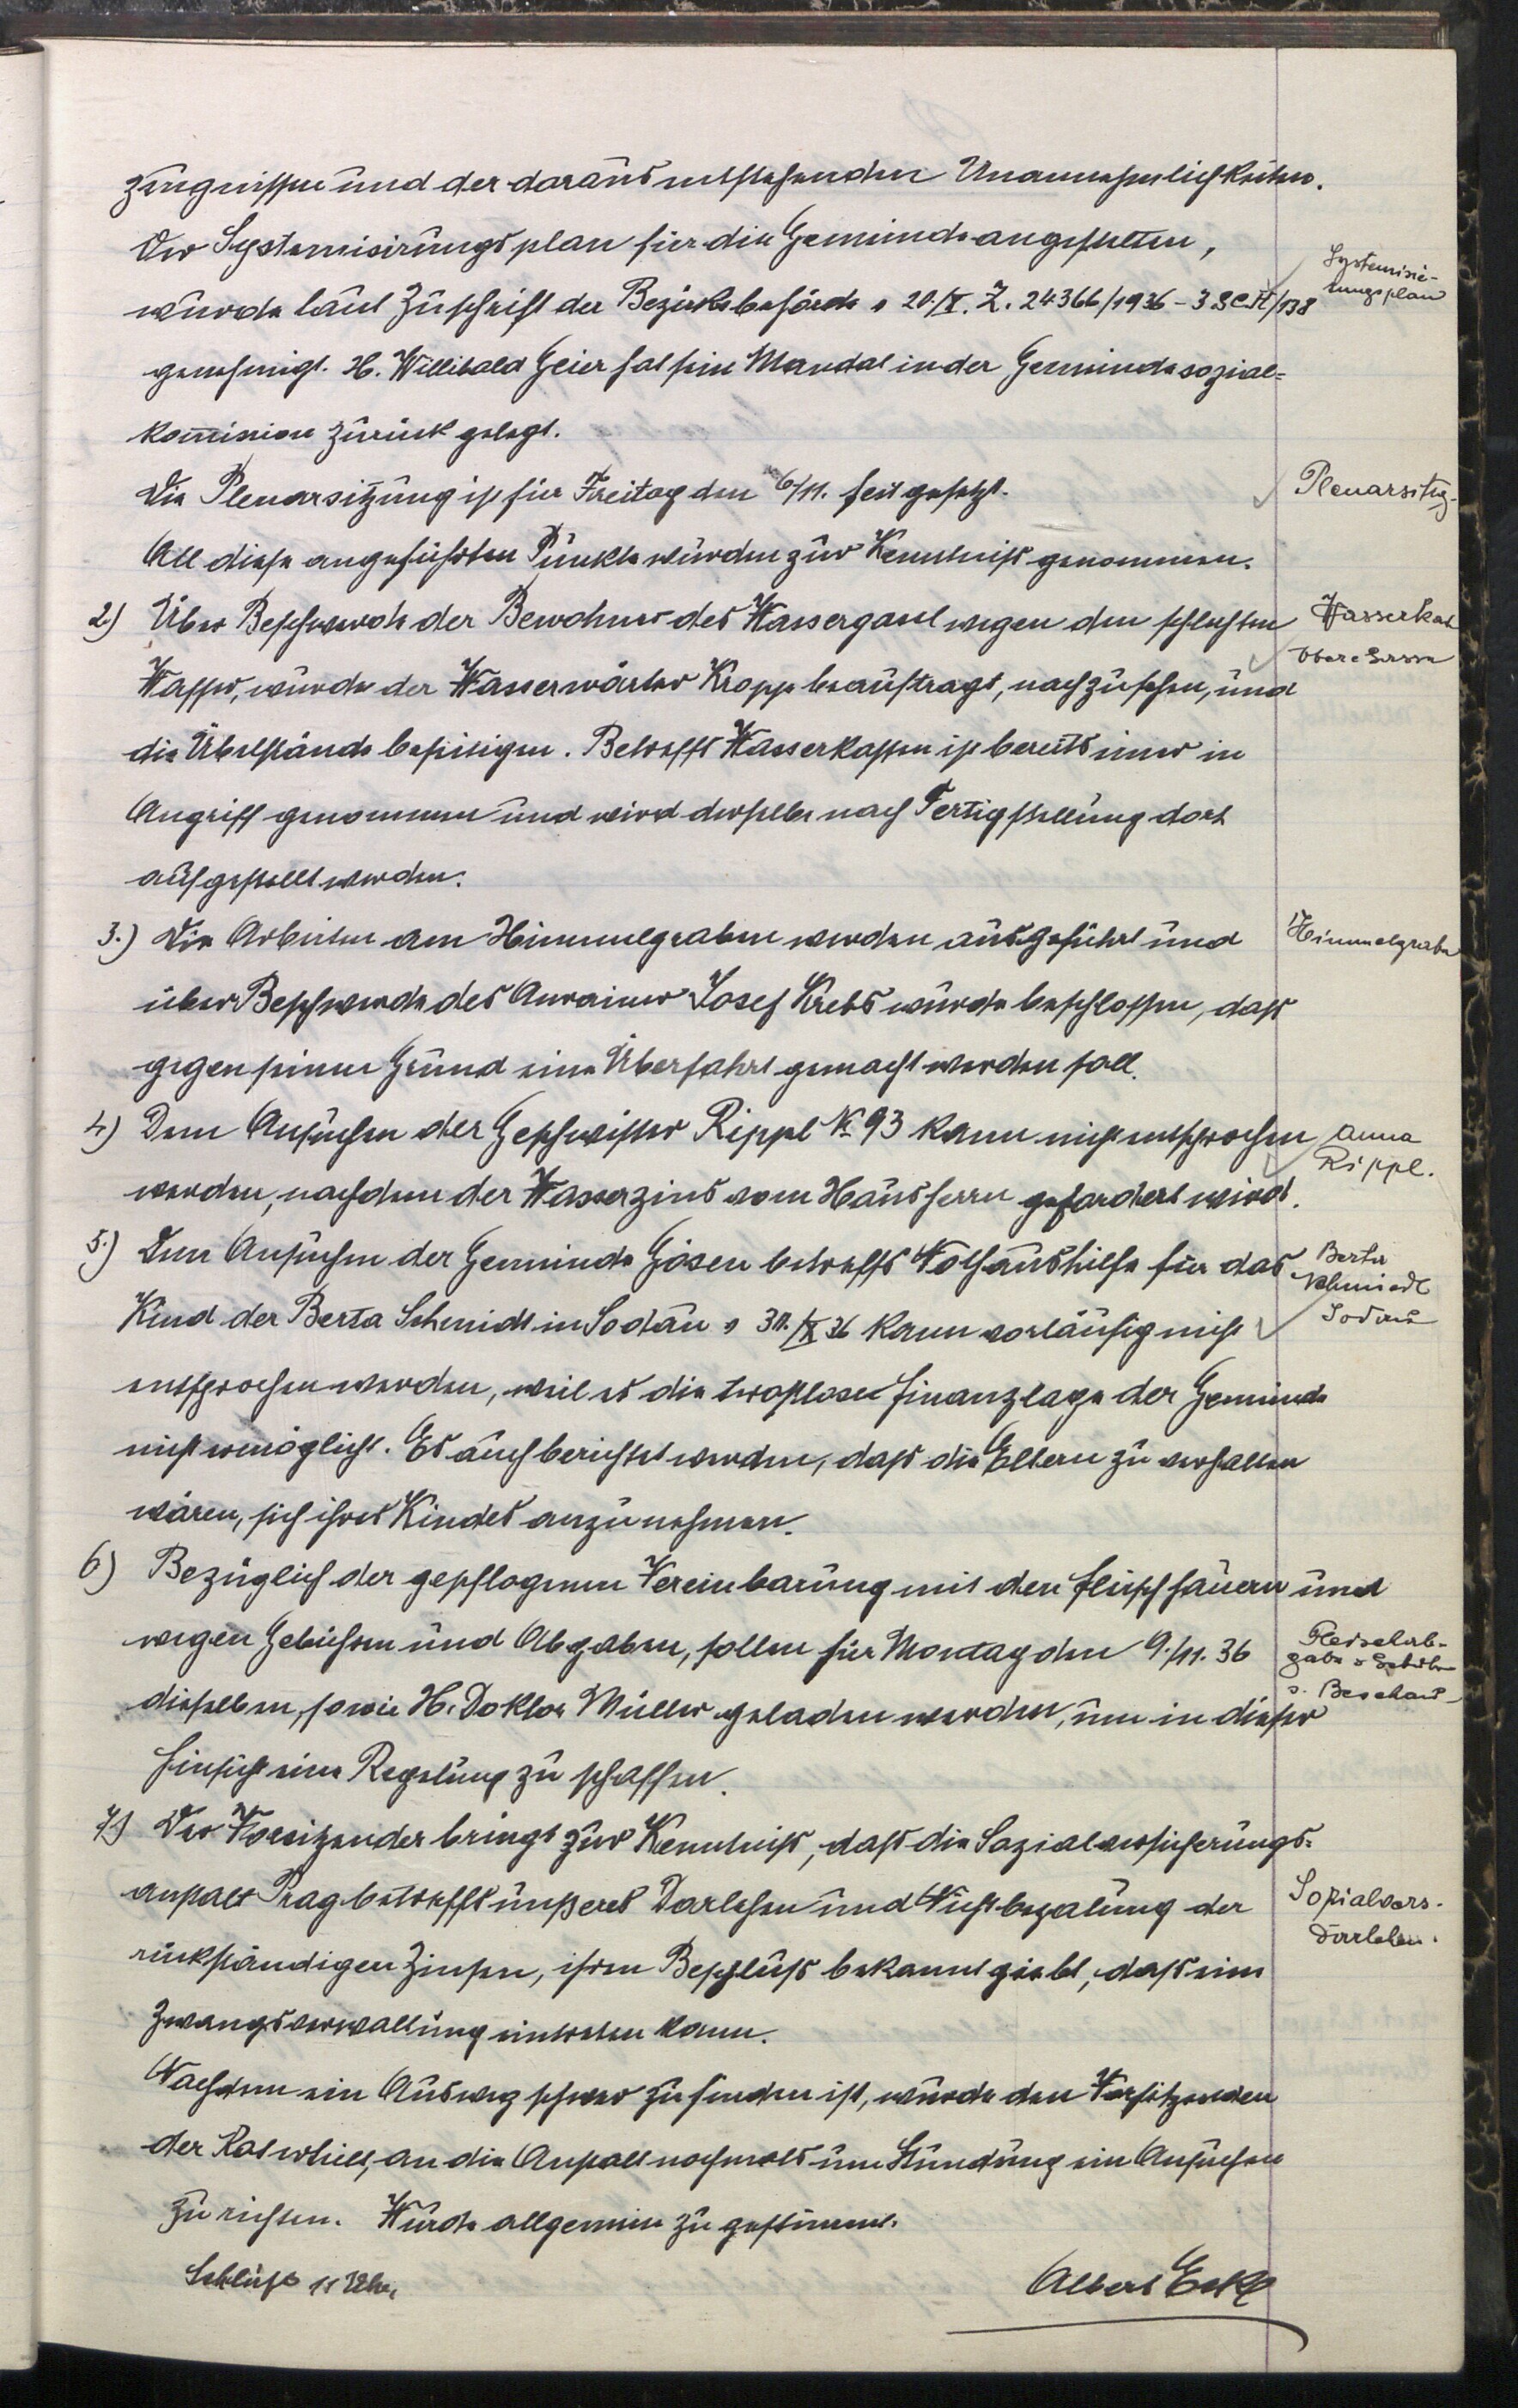 zeugnissen und der daraus entstehenden Unannehmlichkeiten.
Der Systemisirungsplan für die Gemeindeangestellten,
wurde laut Zuschrift der Bezirksbehörde v 20./X. Z. 24366/1936 -
Systemisie-
rungsplan
genehmigt. H. Willibald Geier hat sein Mandat in der Gemeindesozial=
komission zurück gelegt.
Die Plenarsitzung ist für Freitag den 6/11. fest gesetzt.
Plenarsitzg.
All diese angeführten Punkte wurden zur Kenntniß genommen.
2.) Über Beschwerde der Bewohner des Wassergassl wegen den schlechten
Wasserkast
Obere Gasse
Wasser, wurde der Wasserwärter Kropp beauftragt, nachzusehen, und
die Übelstände beseitigen. Betreffs Wasserkasten ist bereits einer in
Angriff genommen und wird derselbe nach Fertigstellung dort
aufgestellt werden.
3.) Die Arbeiten am Himmelgraben werden ausgeführt und
Himmelgrabn
über Beschwerde des Anrainer Josef Krebs wurde beschlossen, daß
gegen seinen Grund eine Überfahrt gemacht werden soll.
4) Dem Ansuchen der Geschwister Rippl № 93 kann nicht entsprochen
Anna
Rippl.
werden, nachdem der Wasserzins vom Hausherrn gefordert wird.
5.) Dem Ansuchen der Gemeinde Gösen betreffs Notaushilfe für das
Berta
Schmiedt
Sodau
Kind der Berta Schmidt in Sodau v 30./X 36 kann vorläufig nicht
entsprochen werden, weil es die trostlose Finanzlage der Gemeinde
nicht ermöglicht. Es auch berichtet werden, daß die Eltern zu verhalten
wären, sich ihres Kindes anzunehmen.
6) Bezüglich der gepflogenen Vereinbarung mit den Fleischhauern und
wegen Gebühren und Abgaben, sollen für Montag den 9./11. 36
Fleischab-
gabe u Gebühr
u. Beschau
dieselben, sowie H. Doktor Müller geladen werden, um in dieser
Hinsicht eine Regelung zu schaffen.
7.) Der Vorsitzender bringt zur Kenntniß, daß die Sozialversicherungs=
anstalt Prag betreffs unseres Darlehen und Nichtbezalung der
Sozialvers.
Darlehen.
rückständigen Zinsen, ihren Beschluß bekanntgiebt, daß eine
Zwangsverwaltung eintreten kann.
Nachdem ein Ausweg schwer zu finden ist, wurde den Vorsitzenden
der Rat erteilt, an die Anstalt nochmals um Stundung ein Ansuchen
zu richten. Wurde allgemein zu gestimmt.
Schluß 11 Uhr.
Albert Eckl